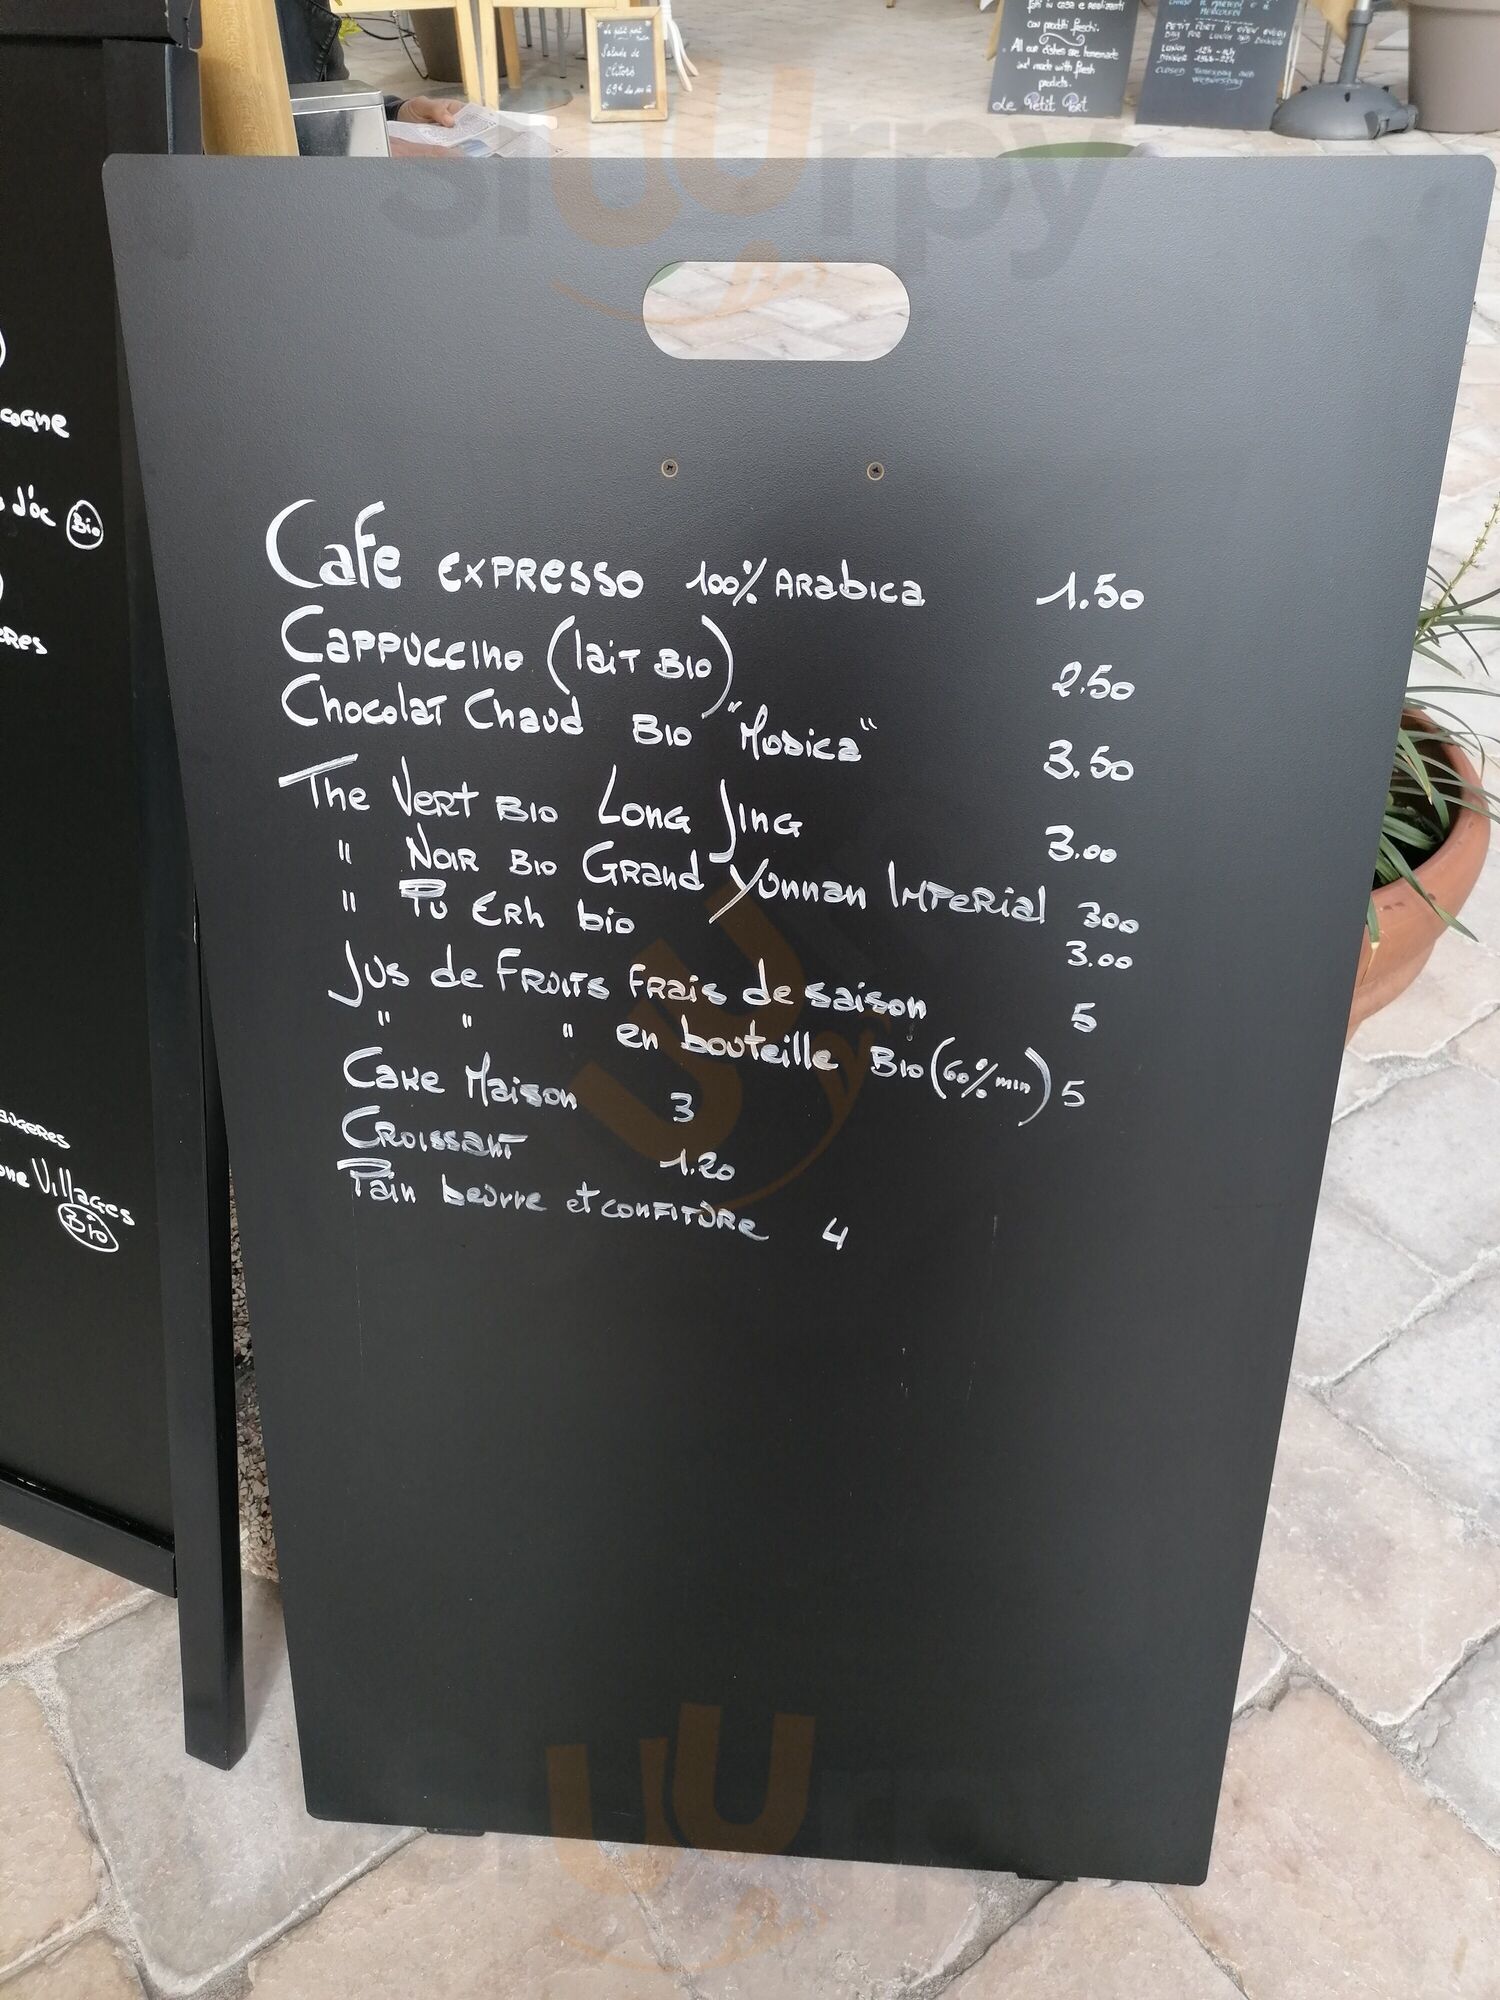 Le petit port
Salade de
69€ les 100 G
fatti in casa e realizzati
con prodotti freschi.
All our dishes are homemade
and made with fresh
products.
Le Petit Port
PETIT PORT IS OPEN EVERY
DAY FOR LUNCH AND DINNER
LUNCH
DINNER
CLOSED TUESDAY AND
WEDNESDAY
sluurpy
cogne
d'oc Bio
eres
augeres
one Villages
Bio
Cafe expresso 100% Arabica 1.50
Cappuccino (lait Bio) 2.50
Chocolat Chaud Bio "Modica" 3.50
The Vert Bio Long Jing 3.00
" Noir Bio Grand Yunnan Imperial 300
" Pu Erh bio 3.00
Jus de Fruits Frais de saison 5
" " " en bouteille Bio (60% min) 5
Cake Maison 3
Croissant 1.20
Pain beurre et confiture 4
sluurpy